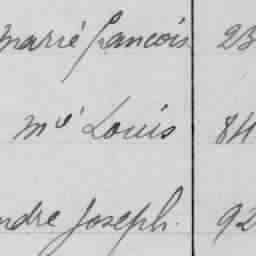 marié francois 23
mié Louis 84
ndre Joseph. 92